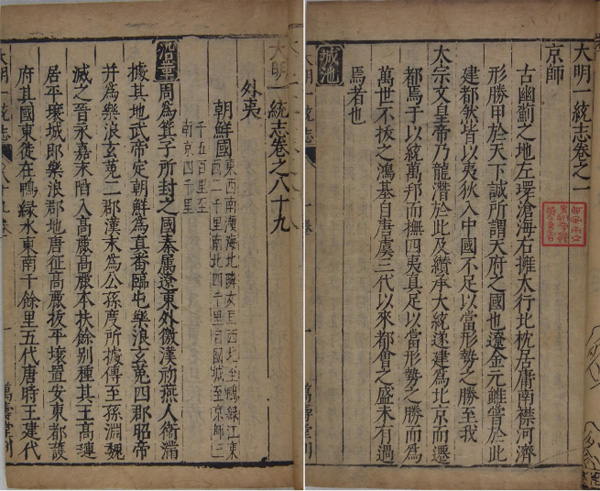 大明一統志卷之一
京師
古幽薊之地左環滄海右擁太行北枕居庸南襟河濟
形勝甲於天下誠所謂天府之國也遼金元雖嘗於此
建都然皆以夷狄入中國不足以當形勢之勝至我
太宗文皇帝乃龍潛於此及纘承大統遂建為北京而遷
都焉于以統萬邦而撫四夷真足以當形勢之勝而為
萬世不拔之鴻基自唐虞三代以來都會之盛未有過
焉者也
城池
大明一統志 一卷 一 萬壽堂刊
大明一統志卷之八十九
外夷
朝鮮國
東西南濱海北隣女直西北至鴨綠江東
西二千里南北四千里自國城至京師三
千五百里至
南京四千里
沿革 周為箕子所封之國秦屬遼東外徼漢初燕人衛滿
據其地武帝定朝鮮為真番臨屯樂浪玄菟四郡昭帝
并為樂浪玄菟二郡漢末為公孫度所據傳至孫淵魏
滅之晉永嘉末陷入高麗高麗本扶餘别種其王高璉
居平壤城即樂浪郡地唐征高麗拔平壤置安東都護
府其國東徙在鴨緑水東南千餘里五代唐時王建代
大明一統志 八十九卷 一 萬壽堂刊